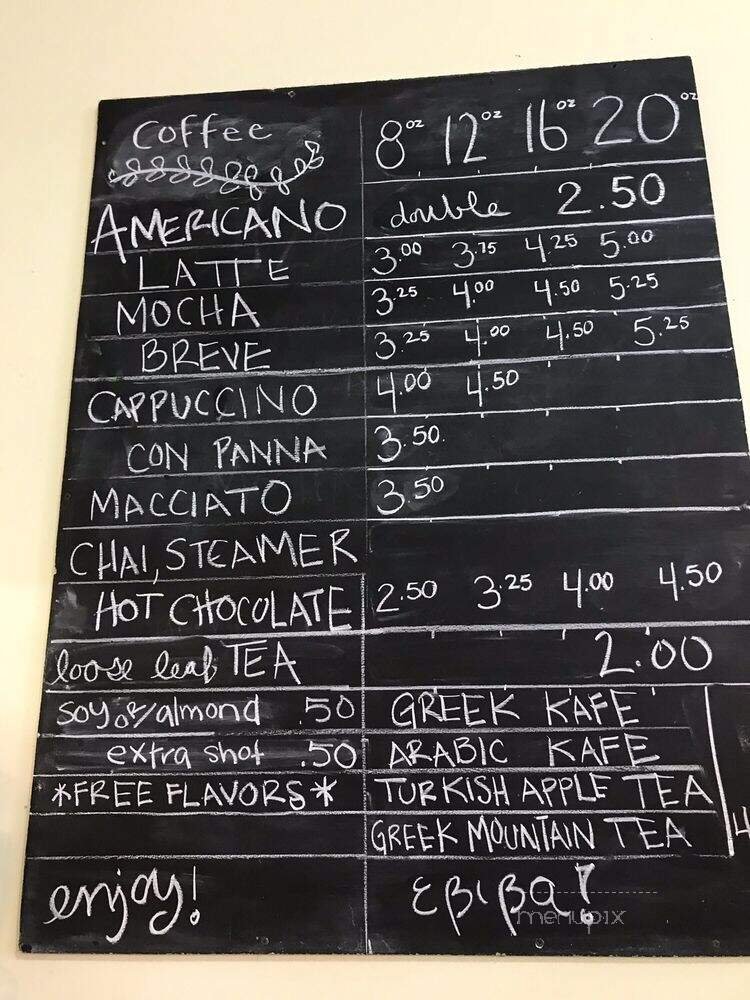 Coffee 8oz 12oz 16oz 20oz
AMERICANO double 2.50
LATTE 3.00 3.75 4.25 5.00
MOCHA 3.25 4.00 4.50 5.25
BREVE 3.25 4.00 4.50 5.25
CAPPUCCINO 4.00 4.50
CON PANNA 3.50
MACCIATO 3.50
CHAI, STEAMER
HOT CHOCOLATE 2.50 3.25 4.00 4.50
loose leaf TEA 2.00
soy or almond .50 GREEK KAFE
extra shot .50 ARABIC KAFE
*FREE FLAVORS* TURKISH APPLE TEA
GREEK MOUNTAIN TEA 4
enjoy! εβιβα!
menupix